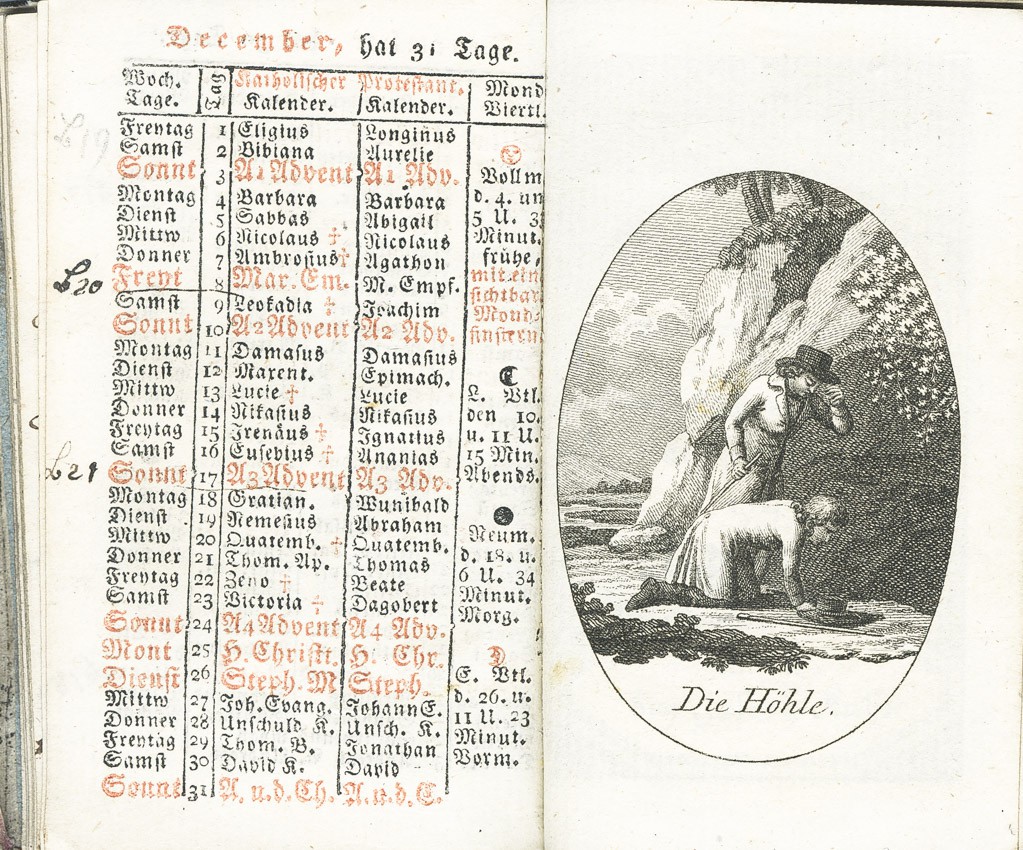 December, hat 31 Tage.
Woch. Tage. Tag Katholischer Kalender. Protestant. Kalender. Mond Viertl.
Freytag 1 Eligius Longinus
Samst 2 Bibiana Aurelie
Sonnt 3 A1 Advent A1 Adv. Vollm
Montag 4 Barbara Barbara d. 4. um
Dienst 5 Sabbas Abigail 5 U. 3
Mittw 6 Nicolaus † Nicolaus Minut.
Donner 7 Ambrosius † Agathon frühe,
L20 Freyt 8 Mar. Em. M. Empf. mit ein
Samst 9 Leokadia † Joachim sichtbar
Sonnt 10 A2 Advent A2 Adv. Mond
finstern
Montag 11 Damasus Damasius
Dienst 12 Maxent. Epimach.
Mittw 13 Lucie † Lucie L. Vtl.
Donner 14 Nikasius Nikasius den 10.
Freytag 15 Irenäus † Ignatius u. 11 U.
Samst 16 Eusebius † Ananias 15 Min.
L21 Sonnt 17 A3 Advent A3 Adv. Abends.
Montag 18 Gratian. Wunibald
Dienst 19 Nemesius Abraham
Mittw 20 Quatemb. † Quatemb. Neum.
Donner 21 Thom. Ap. Thomas d. 18. u.
Freytag 22 Zeno † Beate 6 U. 34
Samst 23 Victoria † Dagobert Minut.
Sonnt 24 A4 Advent A4 Adv. Morg.
Mont 25 H. Christt. H. Chr.
Dienst 26 Steph. M Steph. E. Vtl.
Mittw 27 Joh. Evang. Johann E. d. 26. u.
Donner 28 Unschuld K. Unsch. K. 11 U. 23
Freytag 29 Thom. B. Jonathan Minut.
Samst 30 David K. David Vorm.
Sonnt 31 A. u. d. Ch. A. u. d. C.
L19
Die Höhle.